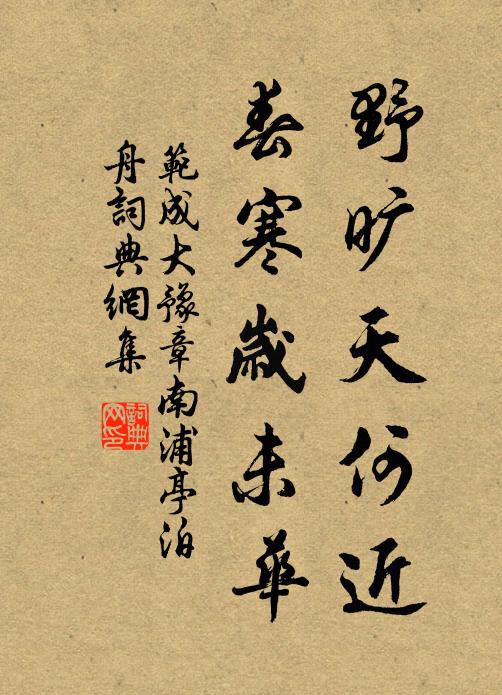 野旷天何近
春寒歲未華
範成大豫章南浦亭泊
舟詞典網集
詞典
网印